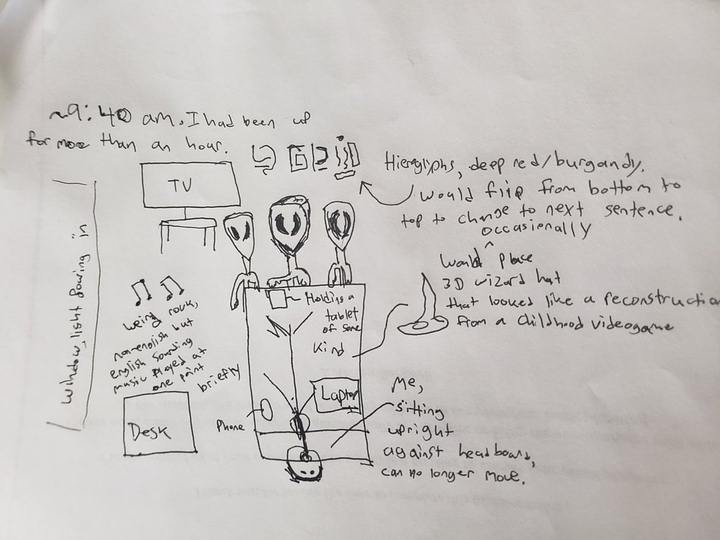 ~9:40 am. I had been up
for more than an hour.
TV
Hieroglyphs, deep red/burgandy.
would flip from bottom to
top to change to next sentence.
occasionally
Would place
3D wizard hat
that looked like a reconstruction
from a childhood videogame
window, light pouring in
Holding a
tablet
of some
kind
weird rock,
non-english but
english sounding
music played at
one point
briefly
Desk
Phone
Laptop
Me,
sitting
upright
against headboard,
can no longer move.